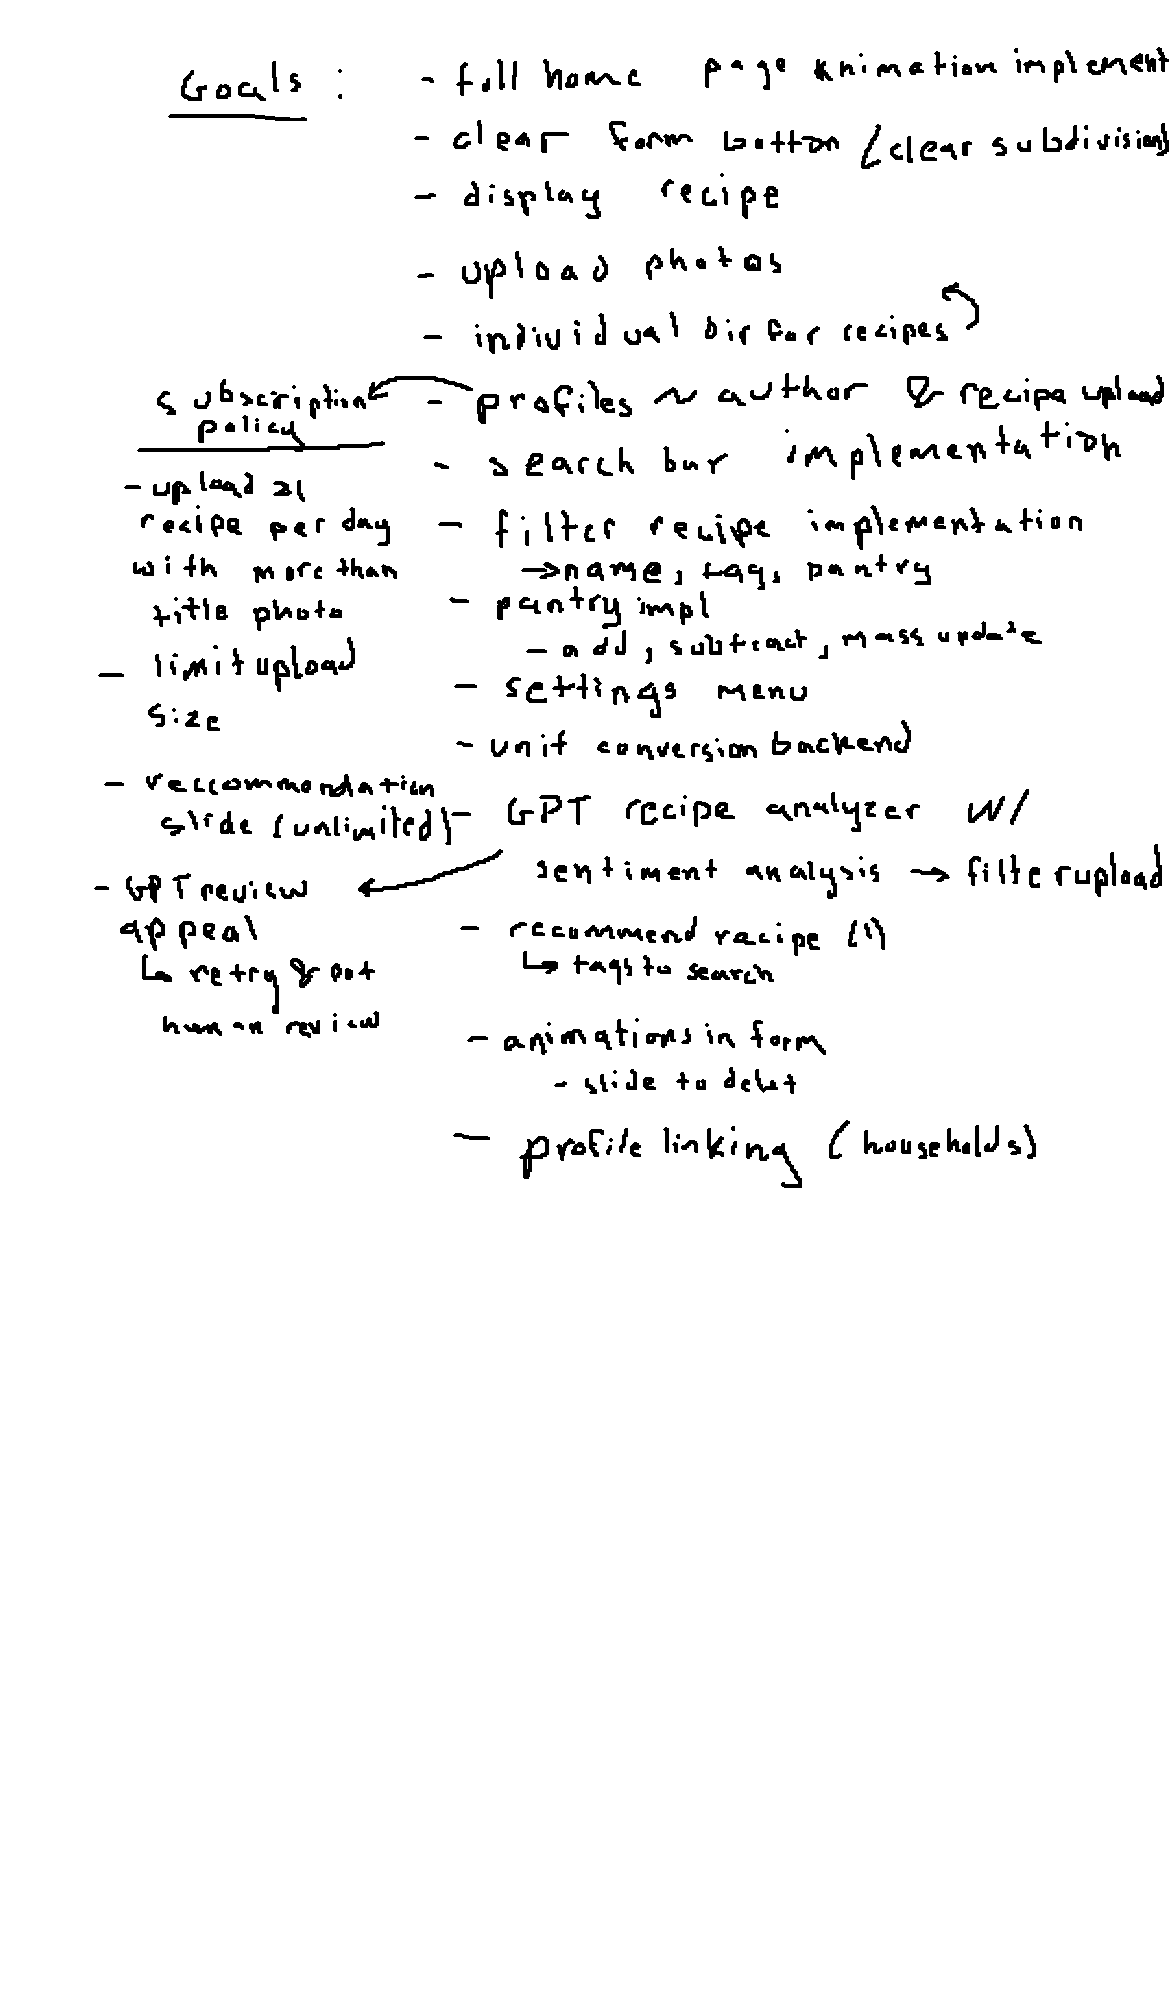 Goals :
- full home page animation implement
- clear form button (clear subdivisions)
- display recipe
- upload photos
- individual dir for recipes
- profiles ~ author & recipe upload
- search bar implementation
- filter recipe implementation
→ name, tag, pantry
- pantry impl
- add, subtract, mass update
- settings menu
- unit conversion backend
- GPT recipe analyzer w/
sentiment analysis → filter upload
- recommend recipe (1)
↳ tags to search
- animations in form
- slide to delet
- profile linking (households)
subscription
policy
- upload ≥1
recipe per day
with more than
title photo
- limit upload
size
- reccommendation
slide (unlimited)
- GPT review
appeal
↳ retry & opt
human review